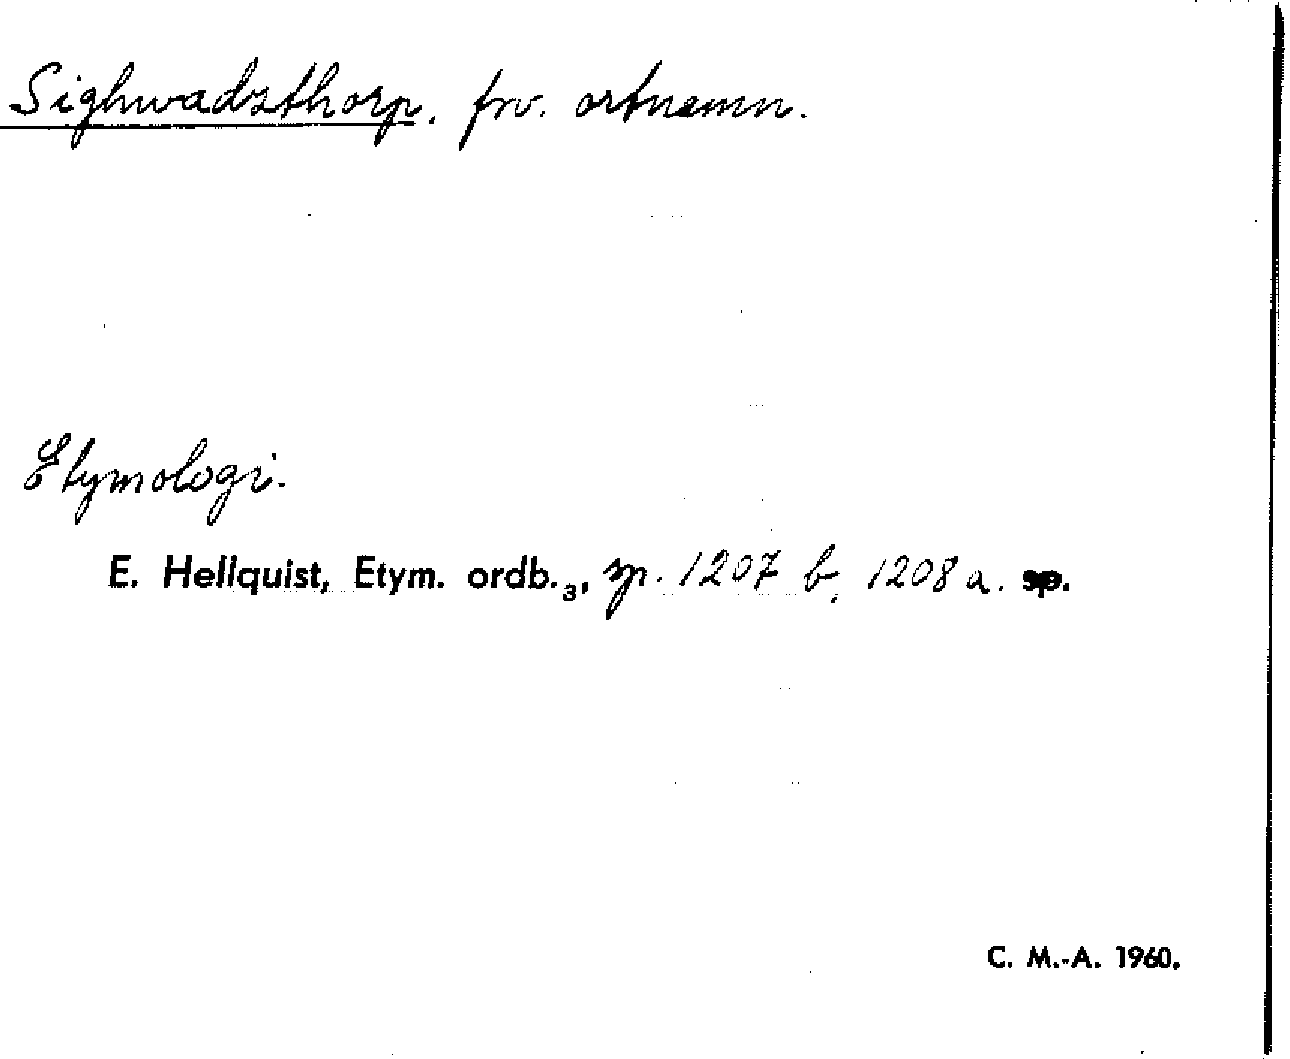 Sighwadzthorp, fsv. ortnamn.
Etymologi.
E. Hellquist, Etym. ordb.₃, sp. 1207 b, 1208 a. sp.
C. M.-A. 1960.